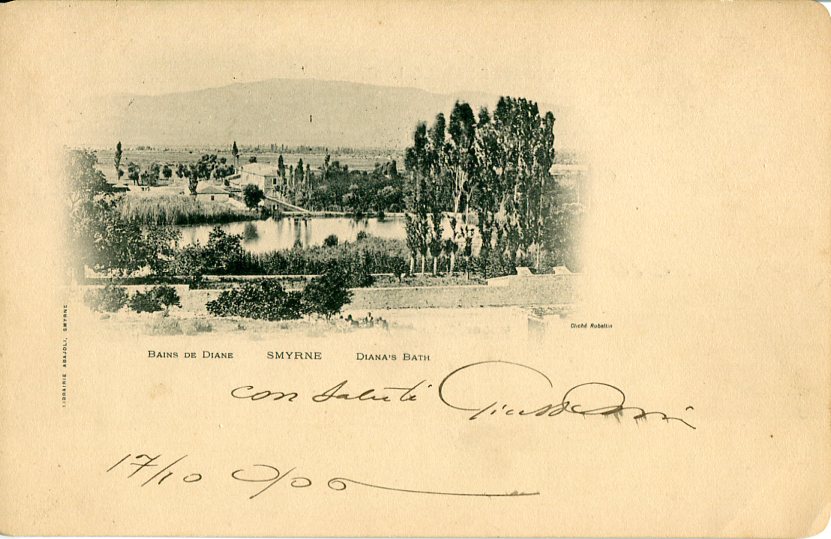 LIBRAIRIE ABAJOLI, SMYRNE
Cliché Rubellin
BAINS DE DIANE SMYRNE DIANA'S BATH
con saluti
17/10